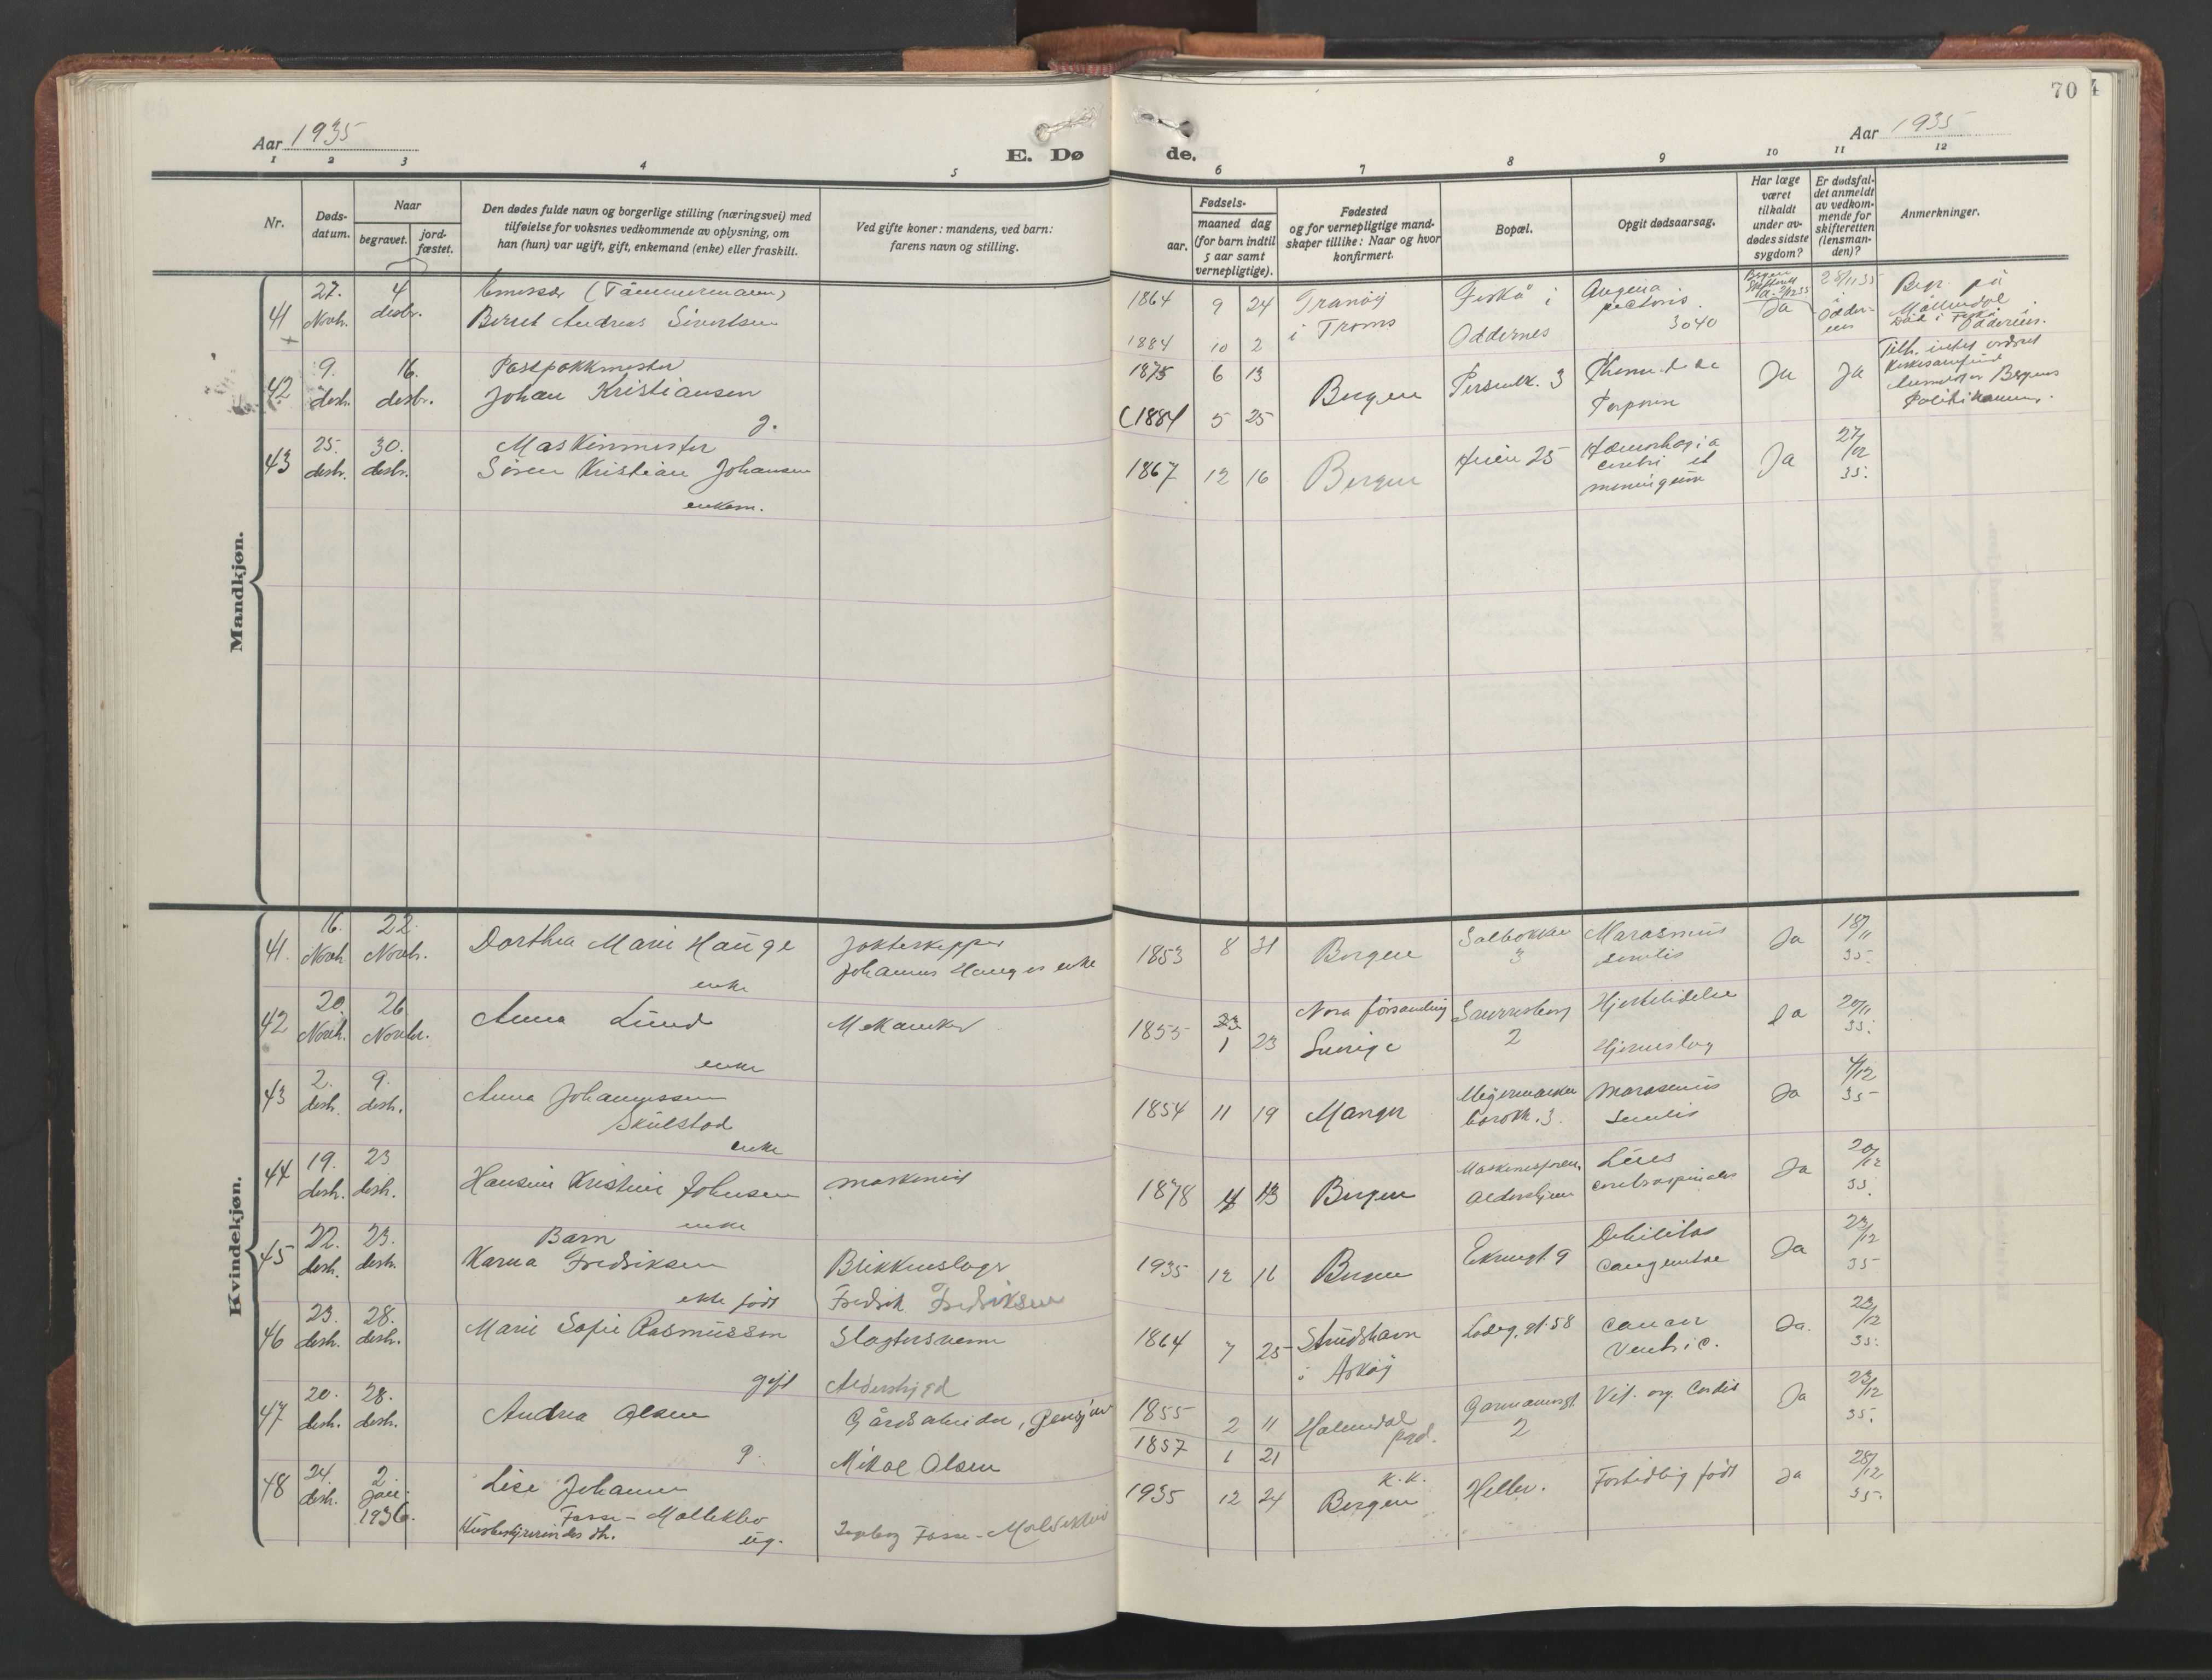 70
Aar 1935
E. Dø
de.
Aar 1935
1 2 3 4 5 6 7 8 9 10 11 12
Nr.
Døds-
datum.
Naar
begravet.
jord-
fæstet.
Den dødes fulde navn og borgerlige stilling (næringsvei) med
tilføielse for voksnes vedkommende av oplysning, om
han (hun) var ugift, gift, enkemand (enke) eller fraskilt.
Ved gifte koner: mandens, ved barn:
farens navn og stilling.
Fødsels-
aar.
maaned dag
(for barn indtil
5 aar samt
vernepligtige).
Fødested
og for vernepligtige mand-
skaper tillike: Naar og hvor
konfirmert.
Bopæl.
Opgit dødsaarsag.
Har læge
været
tilkaldt
under av-
dødes sidste
sygdom?
Er dødsfal-
det anmeldt
av vedkom-
mende for
skifteretten
(lensman-
den)?
Anmerkninger.
Mandkjøn.
41
27.
Novb.
4
desbr.
(Tømmermann)
Andreas Sivertsen
1864 9 24
1884 10 2
Tranøy
i Troms
Fiskå i
Oddernes
Angina
pectoris.
3040
Ja
28/11 35
i
Odder-
nes
Begr. på
Møllendal
Død i Fiskå
Oddernes.
42
9.
desb.
16.
desbr.
Postpakkmester
Johan Kristiansen
g.
1875 6 13
(1884 5 25
Bergen
3
Ja
Ja
Bergens
Politikammer.
43
25.
desb.
30.
desbr.
Maskinmester
Søren Kristian Johansen
enkem.
1867 12 16
Bergen
25
Hæmorhagia
cerebri et
meningeum
Ja
27/12
35.
Kvindekjøn.
41.
16.
Novb.
22.
Novbr.
Dorthea Marie Hauge
enke
Jakteskipper
Johannes Hauges enke
1853 8 31
Bergen
3
Marasmus
senilis
Ja
18/11
35.
42
20.
Novb.
26
Novbr.
Anna Lund
enke
Mekaniker
1855 1 23
Nora församling
Sverige
Sverresborg
2
Hjertelidelse
Hjerneslag
Ja
20/11
35.
43
2.
desb.
9.
desb.
Anna Johannessen
Skulstad
enke
1854 11 19
Manger
3.
Marasmus
senilis
Ja
4/12
35
44
19.
desb.
23
desb.
Hansine Kristine Johnsen
enke
maskinist
1878 4 13
Bergen
Aldershjem
Lues
cerebrospinales
Ja
20/12
35.
45
22.
desb.
23.
desb.
Barn
Karna Fredriksen
ekte født
Blikkenslager
Fredrik Fredriksen
1935 12 16
Bergen
9
Debilitas
congenitae
Ja
23/12
35
46
23.
desb.
28.
desb.
Marie Sofie Rasmussen
gift
Slagtersvenn
1864 7 25
Strudshavn
i Askøy
Ladeg. gt. 58
cancer
ventric.
Ja.
23/12
35.
47
20.
desb.
28.
desb.
Andrea Olsen
g.
Gårdsarbeider,
Mikal Olsen
1855 2 11
1857 1 21
2
Vit. org. Cordis
Ja
23/12
35.
48
24.
desb.
2.
Jan.
1936.
Lise Johanne
Fasse - Molleklev
ug.
Ingeborg Fasse -
1935 12 24
K.K.
Bergen
Fortidlig født
Ja
28/12
35.